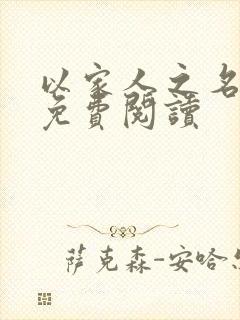 以家人之名
免費閱讀
萨克森-安哈